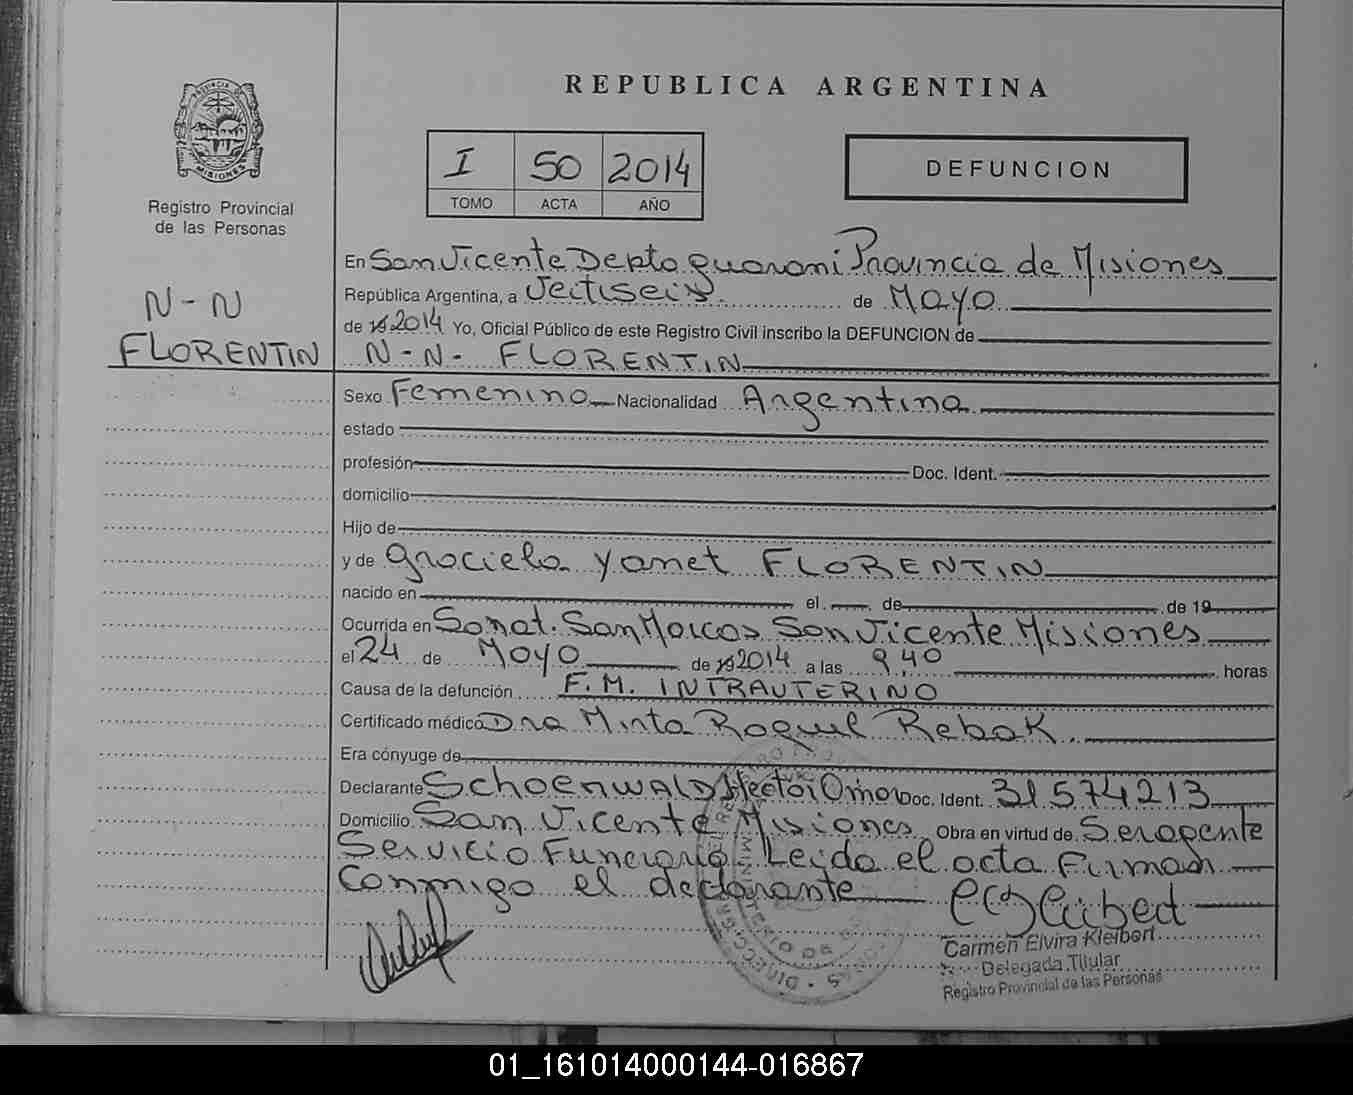 REPUBLICA ARGENTINA
PROVINCIA DE
MISIONES
Registro Provincial
de las Personas
I 50 2014
TOMO ACTA AÑO
DEFUNCION
N-N
FLORENTIN
En San Vicente Depto guarani Provincia de Misiones
República Argentina, a Veitiseis de Mayo
de 19 2014 Yo, Oficial Público de este Registro Civil inscribo la DEFUNCION de
N-N- FLORENTIN
Sexo Femenino Nacionalidad Argentina
estado
profesión Doc. Ident.
domicilio
Hijo de
y de Graciela Yanet FLORENTIN
nacido en el de de 19
Ocurrida en Sanat. San Marcos San Vicente Misiones
el 24 de Mayo de 19 2014 a las 9,40 horas
Causa de la defunción F.M. INTRAUTERINO
Certificado médico Dra Mirta Raquel Rebak
Era cónyuge de
Declarante SCHOENWALD Hector Omar Doc. Ident. 31.574.213
Domicilio San Vicente Misiones Obra en virtud de Ser agente
Servicio Funerario. Leida el acta Firman
conmigo el declarante
Carmen Elvira Kleibert
Delegada Titular
Registro Provincial de las Personas
01_161014000144-016867